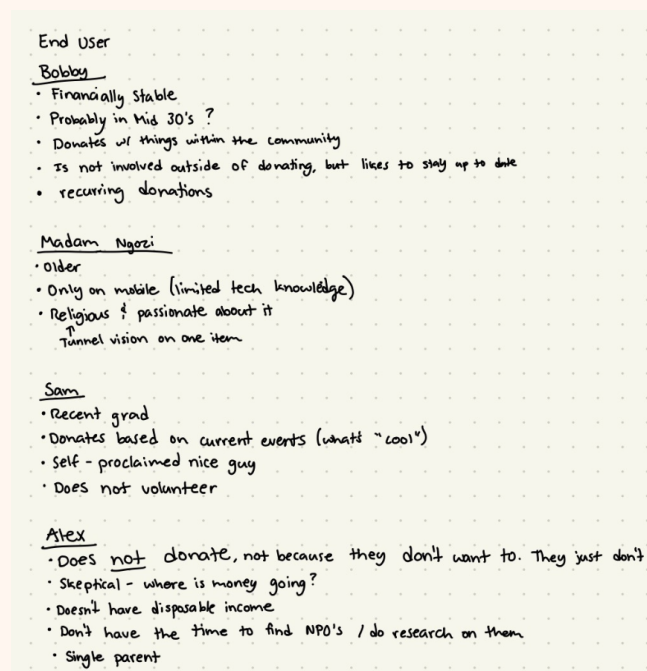 End User
Bobby
• Financially Stable
• Probably in Mid 30's ?
• Donates w/ things within the community
• Is not involved outside of donating, but likes to stay up to date
• recurring donations
Madam Ngozi
• older
• Only on mobile (limited tech knowledge)
• Religious & passionate about it
↑
Tunnel vision on one item
Sam
• Recent grad
• Donates based on current events (what's "cool")
• Self-proclaimed nice guy
• Does not volunteer
Alex
• Does not donate, not because they don't want to. They just don't
• Skeptical - where is money going?
• Doesn't have disposable income
• Don't have the time to find NPO's / do research on them
• Single parent